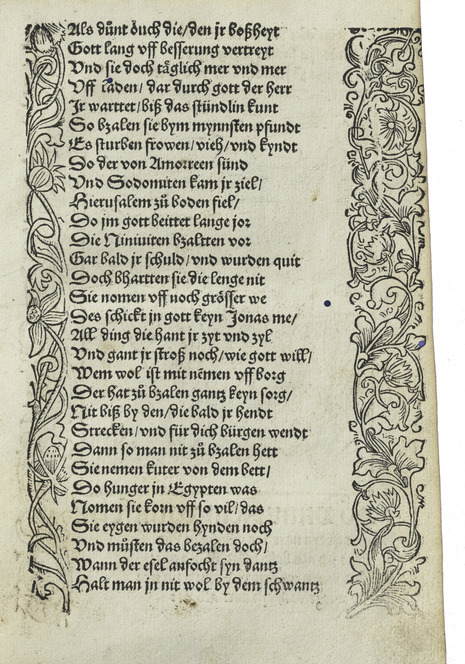 Als dünt öuch die/ den jr boßheyt
Gott lang vff besserung vertreyt
Vnd sie doch täglich mer vnd mer
Vff laden/ dar durch gott der herr
Jr warttet/ biß das stündlin kunt
So bzalen sie bym mynnsten pfundt
Es sturben frowen/ vieh/ vnd kyndt
Do der von Amorreen sünd
Vnd Sodomiten kam jr ziel/
Hierusalem zů boden fiel/
Do jm gott beittet lange jor
Die Niniuiten bzaltten vor
Gar bald jr schuld/ vnd wurden quit
Doch bhartten sie die lenge nit
Sie nomen vff noch grösser we
Des schickt jn gott keyn Jonas me/
All ding die hant jr zyt vnd zyl
Vnd gant jr stroß noch/ wie gott will/
Wem wol ist mit nēmen vff borg
Der hat zů bzalen gantz keyn sorg/
Nit biß by den/ die bald jr hendt
Strecken/ vnd für dich bürgen wendt
Dann so man nit zů bzalen hett
Sie nemen kuter von dem bett/
Do hunger jn Egypten was
Nomen sie korn vff so vil/ das
Sie eygen wurden hynden noch
Vnd müsten das bezalen doch/
Wann der esel anfocht syn dantz
Halt man jn nit wol by dem schwantz